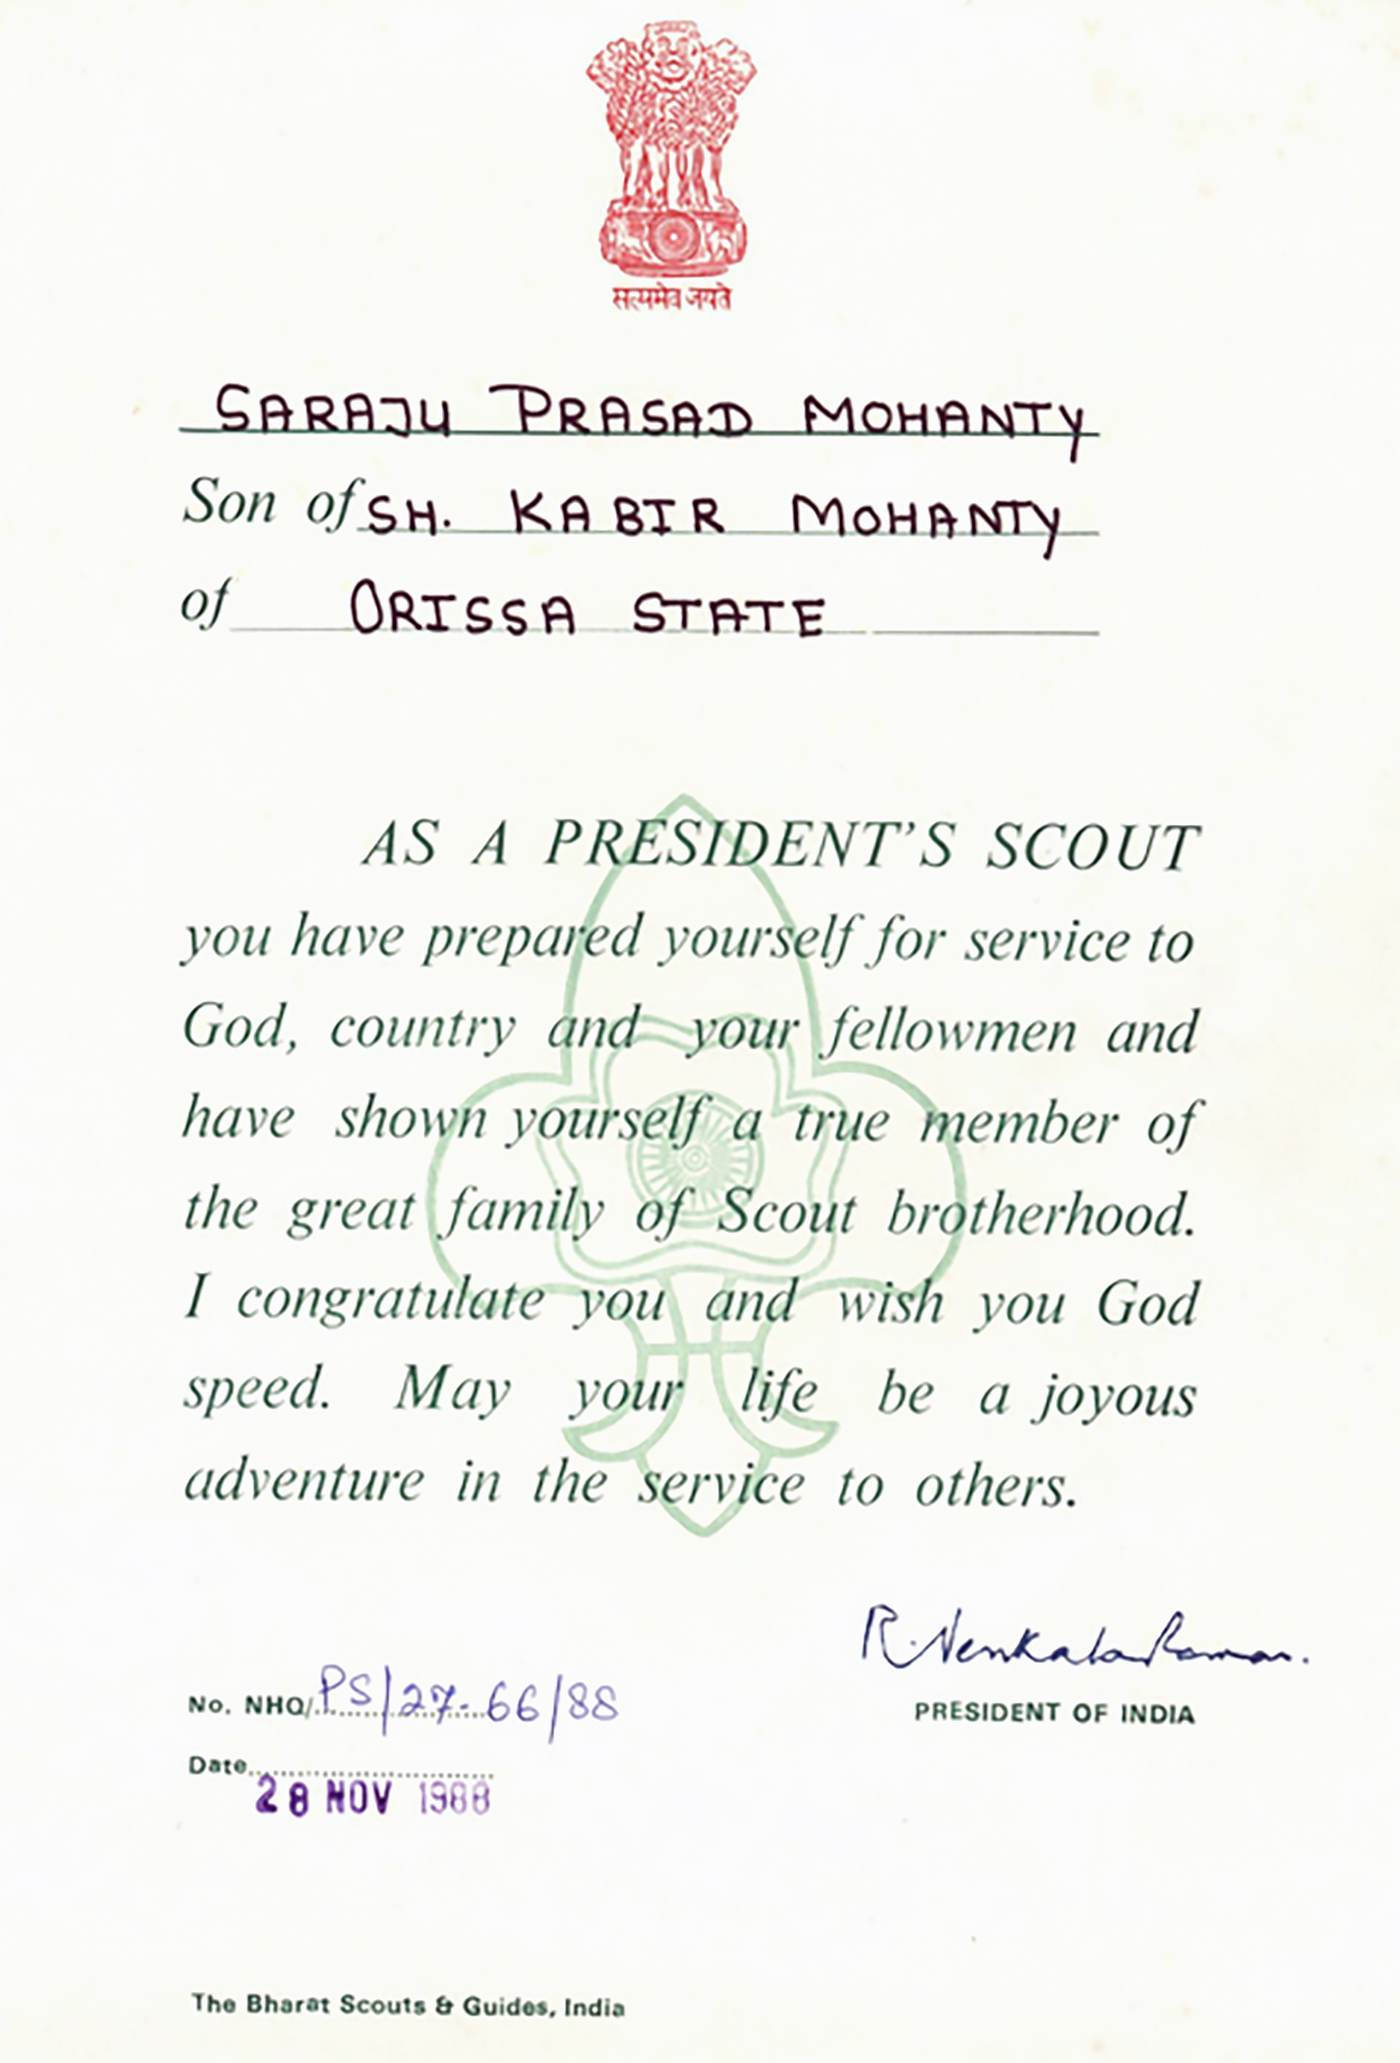 सत्यमेव जयते
SARAJU PRASAD MOHANTY
Son of SH. KABIR MOHANTY
of ORISSA STATE
AS A PRESIDENT'S SCOUT
you have prepared yourself for service to
God, country and your fellowmen and
have shown yourself a true member of
the great family of Scout brotherhood.
I congratulate you and wish you God
speed. May your life be a joyous
adventure in the service to others.
R. Venkataraman.
No. NHQ/PS/27-66/88
PRESIDENT OF INDIA
Date
28 NOV 1988
The Bharat Scouts & Guides, India